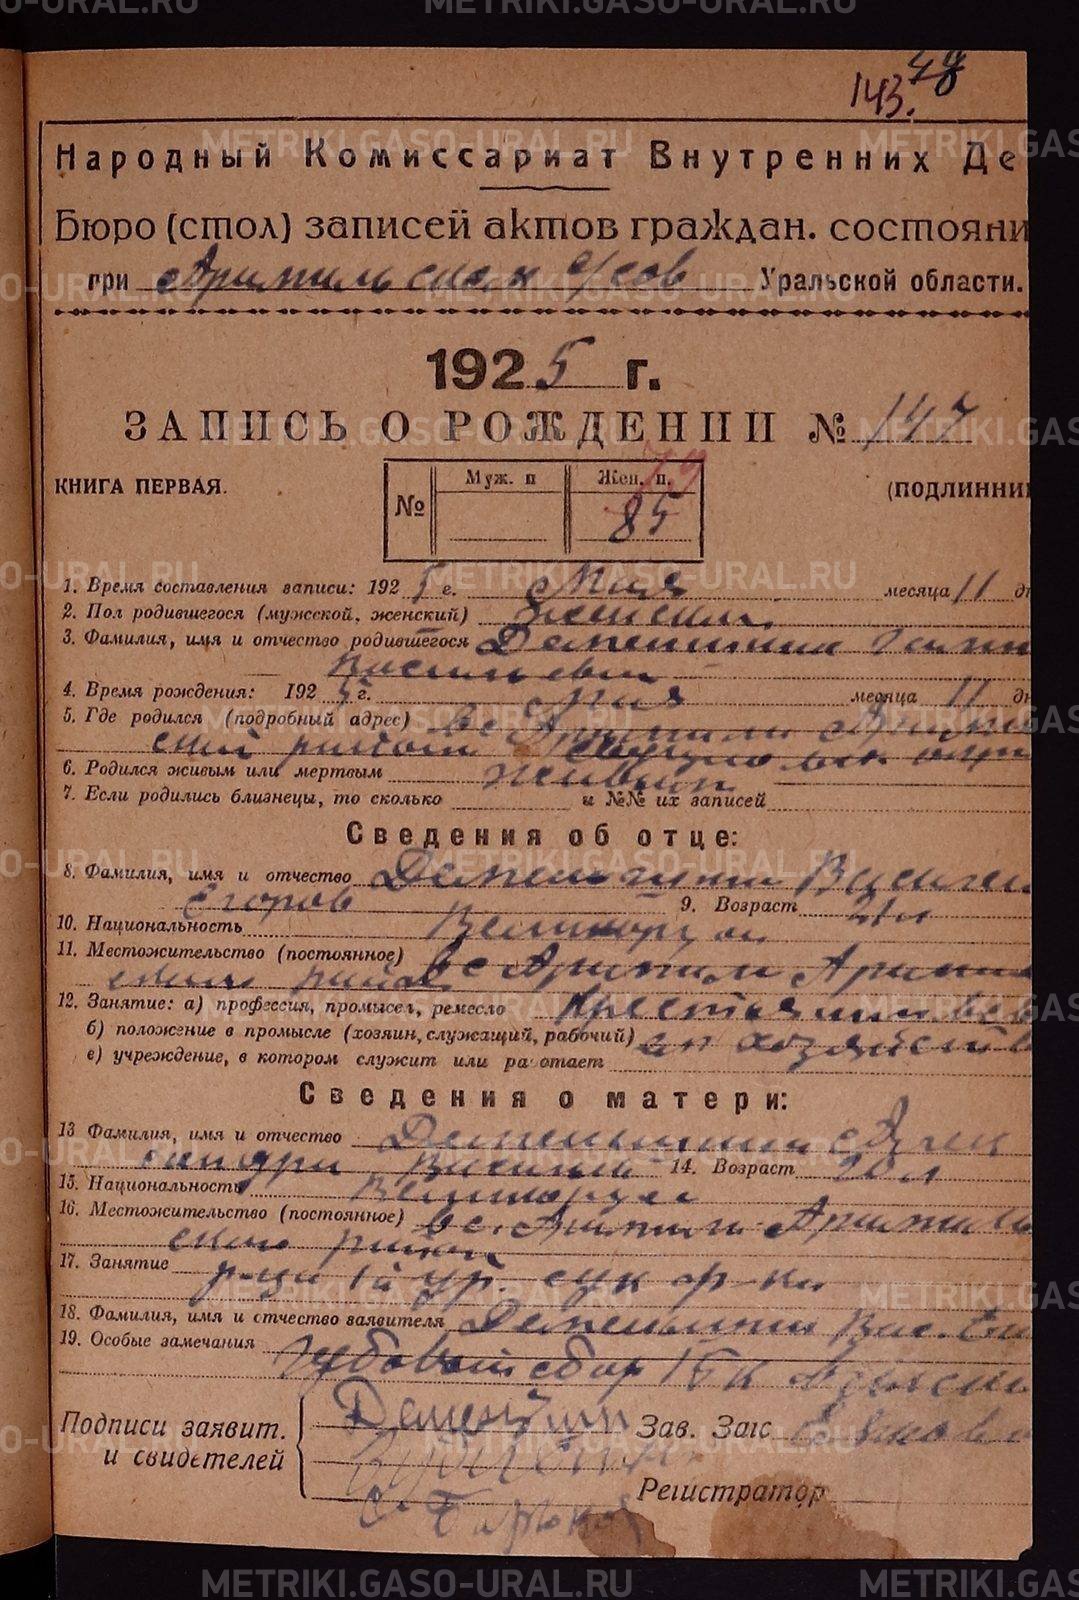 48
143.
Народный Комиссариат Внутренних Де
Бюро (стол) записей актов граждан. состояни
при Арамильском с/сов Уральской области.
1925 г.
ЗАПИСЬ О РОЖДЕНИИ № 147
КНИГА ПЕРВАЯ.
(ПОДЛИННИ
№ Муж. п Жен. п.
79
85
1. Время составления записи: 1925 г. Мая месяца 11 дн
2. Пол родившегося (мужской, женский) женский
3. Фамилия, имя и отчество родившегося Деменьшина
Васильевна
4. Время рождения: 1925 г. мая месяца 11 дн
5. Где родился (подробный адрес) в с Арамили Арами
ский район
6. Родился живым или мертвым живым
7. Если родились близнецы, то сколько и №№ их записей
Сведения об отце:
8. Фамилия, имя и отчество Деменьшин Василий
Егоров 9. Возраст 21 л
10. Национальность Великорус
11. Местожительство (постоянное) в с Арамили Арамил
ский район
12. Занятие: а) профессия, промысел, ремесло Крестьянин
б) положение в промысле (хозяин, служащий, рабочий) хозяйств
в) учреждение, в котором служит или работает
Сведения о матери:
13 Фамилия, имя и отчество Деменьшина Алек
сандра Василь 14. Возраст 20 л
15. Национальность Великорус
16. Местожительство (постоянное) в с. Арамили Арамили
ский район
17. Занятие р-ца 1й ур. сук ф-ки
18. Фамилия, имя и отчество заявителя Деменьшин Вас. Ег
19. Особые замечания сбор 15 к
Подписи заявит. и свидетелей
Деменьшин
Зав. Загс
Регистратор
METRIKI.GASO-URAL.RU